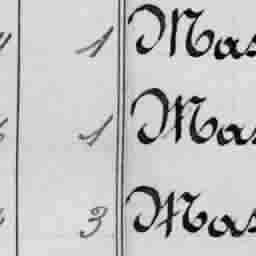 1 Mas
1 Mas
3 Mas